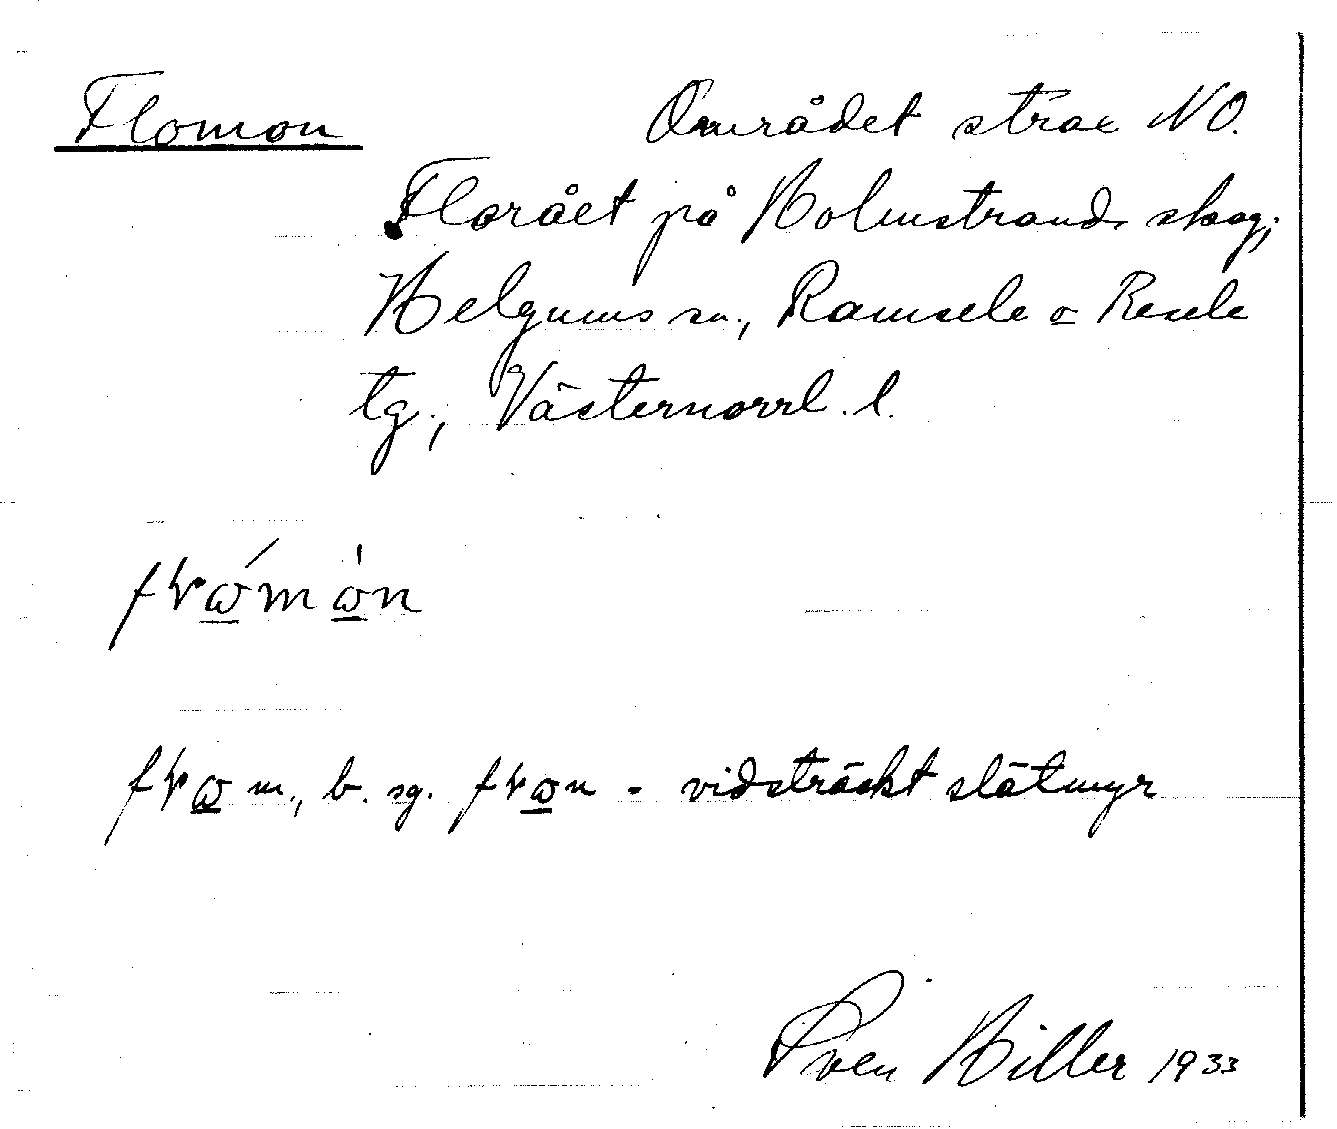 Flomon Området strax NO.
Florået på Holmstrands skog,
Helgums sn., Ramsele o Resele
tg., Västernorrl. l.
m., b. sg. - vidsträckt slåtmyr
Sven Hiller 1933